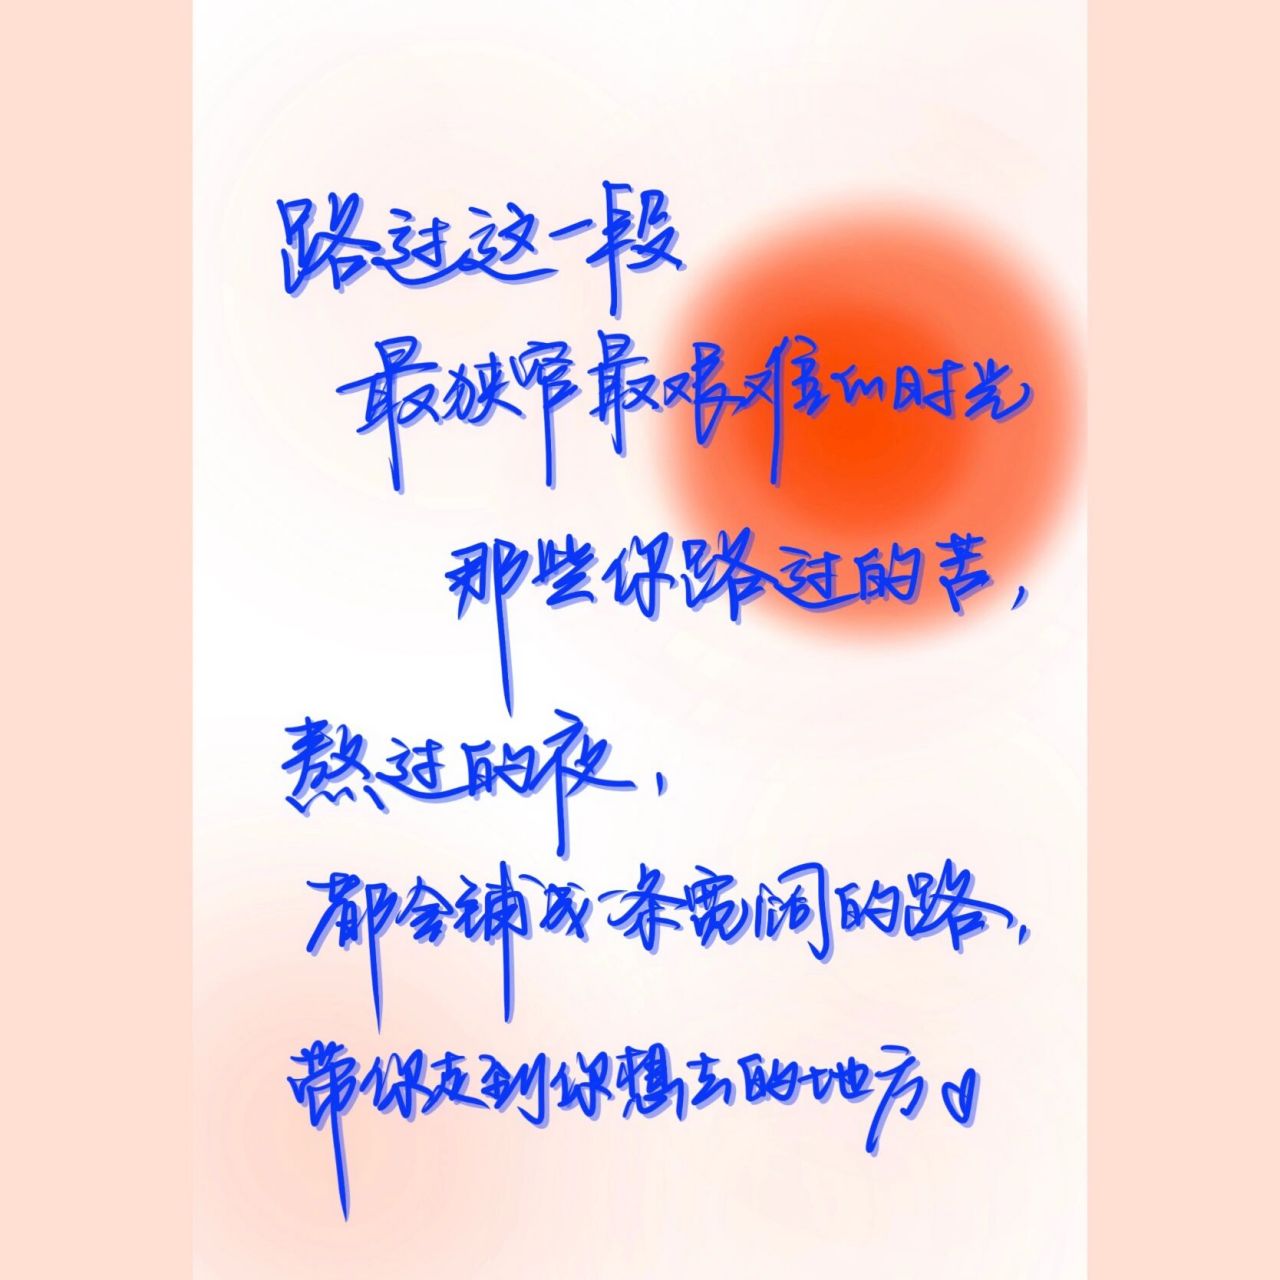 路过这一段
最狭窄最艰难的时光
那些你路过的苦，
熬过的夜，
都会铺成一条宽阔的路，
带你走到你想去的地方。